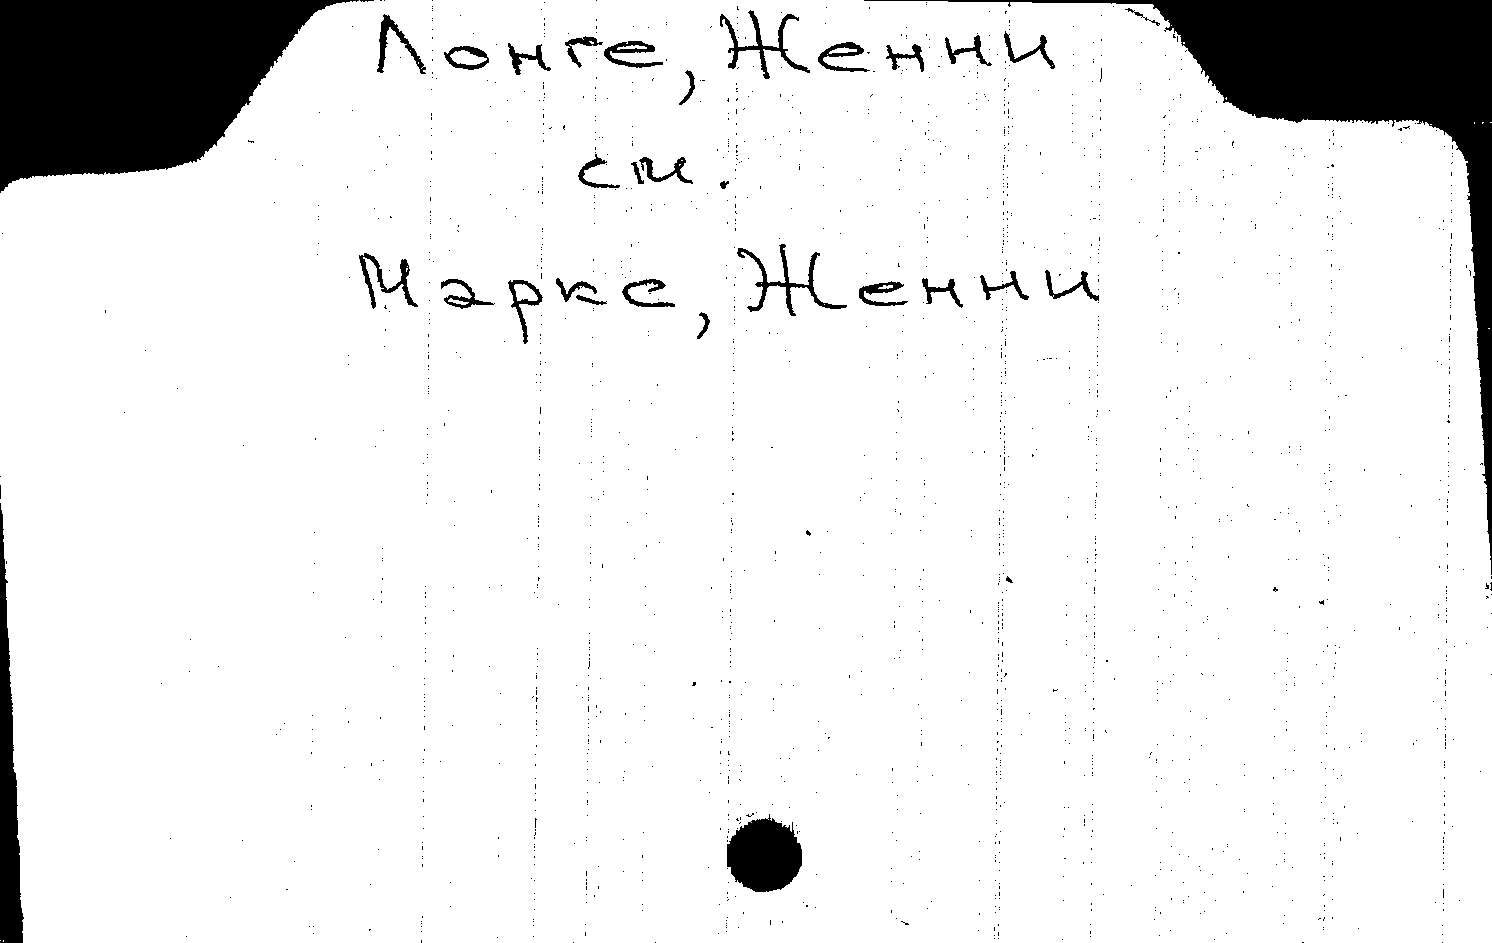 Лонге, Женни
см.
Маркс, Женни